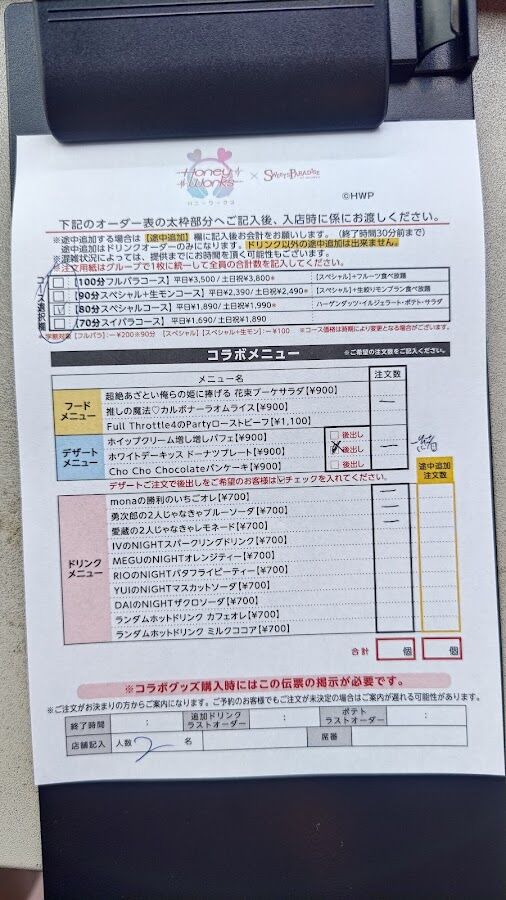 Honey Works
ハニーワークス
×
SWEETS PARADISE
©HWP
下記のオーダー表の太枠部分へご記入後、入店時に係にお渡しください。
※途中追加する場合は【途中追加】欄に記入後お会計をお願いします。（終了時間30分前まで）
途中追加はドリンクオーダーのみになります。ドリンク以外の途中追加は出来ません。
※混雑状況によっては、提供までにお時間を頂く可能性もございます。
※注文用紙はグループで1枚に統一して全員の合計数を記入してください。
コース選択欄
【100分フルパラコース】平日¥3,500/土日祝¥3,800* 【スペシャル】+フルーツ食べ放題
【90分スペシャル+生モンコース】平日¥2,390/土日祝¥2,490* 【スペシャル】+生絞りモンブラン食べ放題
【80分スペシャルコース】平日¥1,890/土日祝¥1,990* ハーゲンダッツ・イルジェラート・ポテト・サラダ
【70分スイパラコース】平日¥1,690/土日祝¥1,890
学割対象 【フルパラ】:ー¥200※90分 【スペシャル】【スペシャル+生モン】:ー¥100 ※コース価格は時期により変更となる場合がございます。
コラボメニュー ※ご希望の注文数をご記入ください。
メニュー名 注文数
フードメニュー
超絶あざとい俺らの姫に捧げる 花束ブーケサラダ【¥900】
推しの魔法♡カルボナーラオムライス【¥900】 一
Full Throttle4のPartyローストビーフ【¥1,100】
デザートメニュー
ホイップクリーム増し増しパフェ【¥900】 後出し
ホワイトデーキッス ドーナツプレート【¥900】 後出し 一
Cho Cho Chocolateパンケーキ【¥900】 後出し
デザートご注文で後出しをご希望のお客様は☑チェックを入れてください。
途中追加注文数
ドリンクメニュー
monaの勝利のいちごオレ【¥700】 一
勇次郎の2人じゃなきゃブルーソーダ【¥700】 一
愛蔵の2人じゃなきゃレモネード【¥700】 一
IVのNIGHTスパークリングドリンク【¥700】
MEGUのNIGHTオレンジティー【¥700】
RIOのNIGHTバタフライピーティー【¥700】
YUIのNIGHTマスカットソーダ【¥700】
DAIのNIGHTザクロソーダ【¥700】
ランダムホットドリンク カフェオレ【¥700】
ランダムホットドリンク ミルクココア【¥700】
合計 個 個
※コラボグッズ購入時にはこの伝票の掲示が必要です。
※ご注文がお決まりの方からご案内になります。ご予約のお客様でもご注文が未決定の場合はご案内が遅れる可能性があります。
終了時間 : 追加ドリンクラストオーダー : ポテトラストオーダー :
店舗記入 人数 2 名 席番